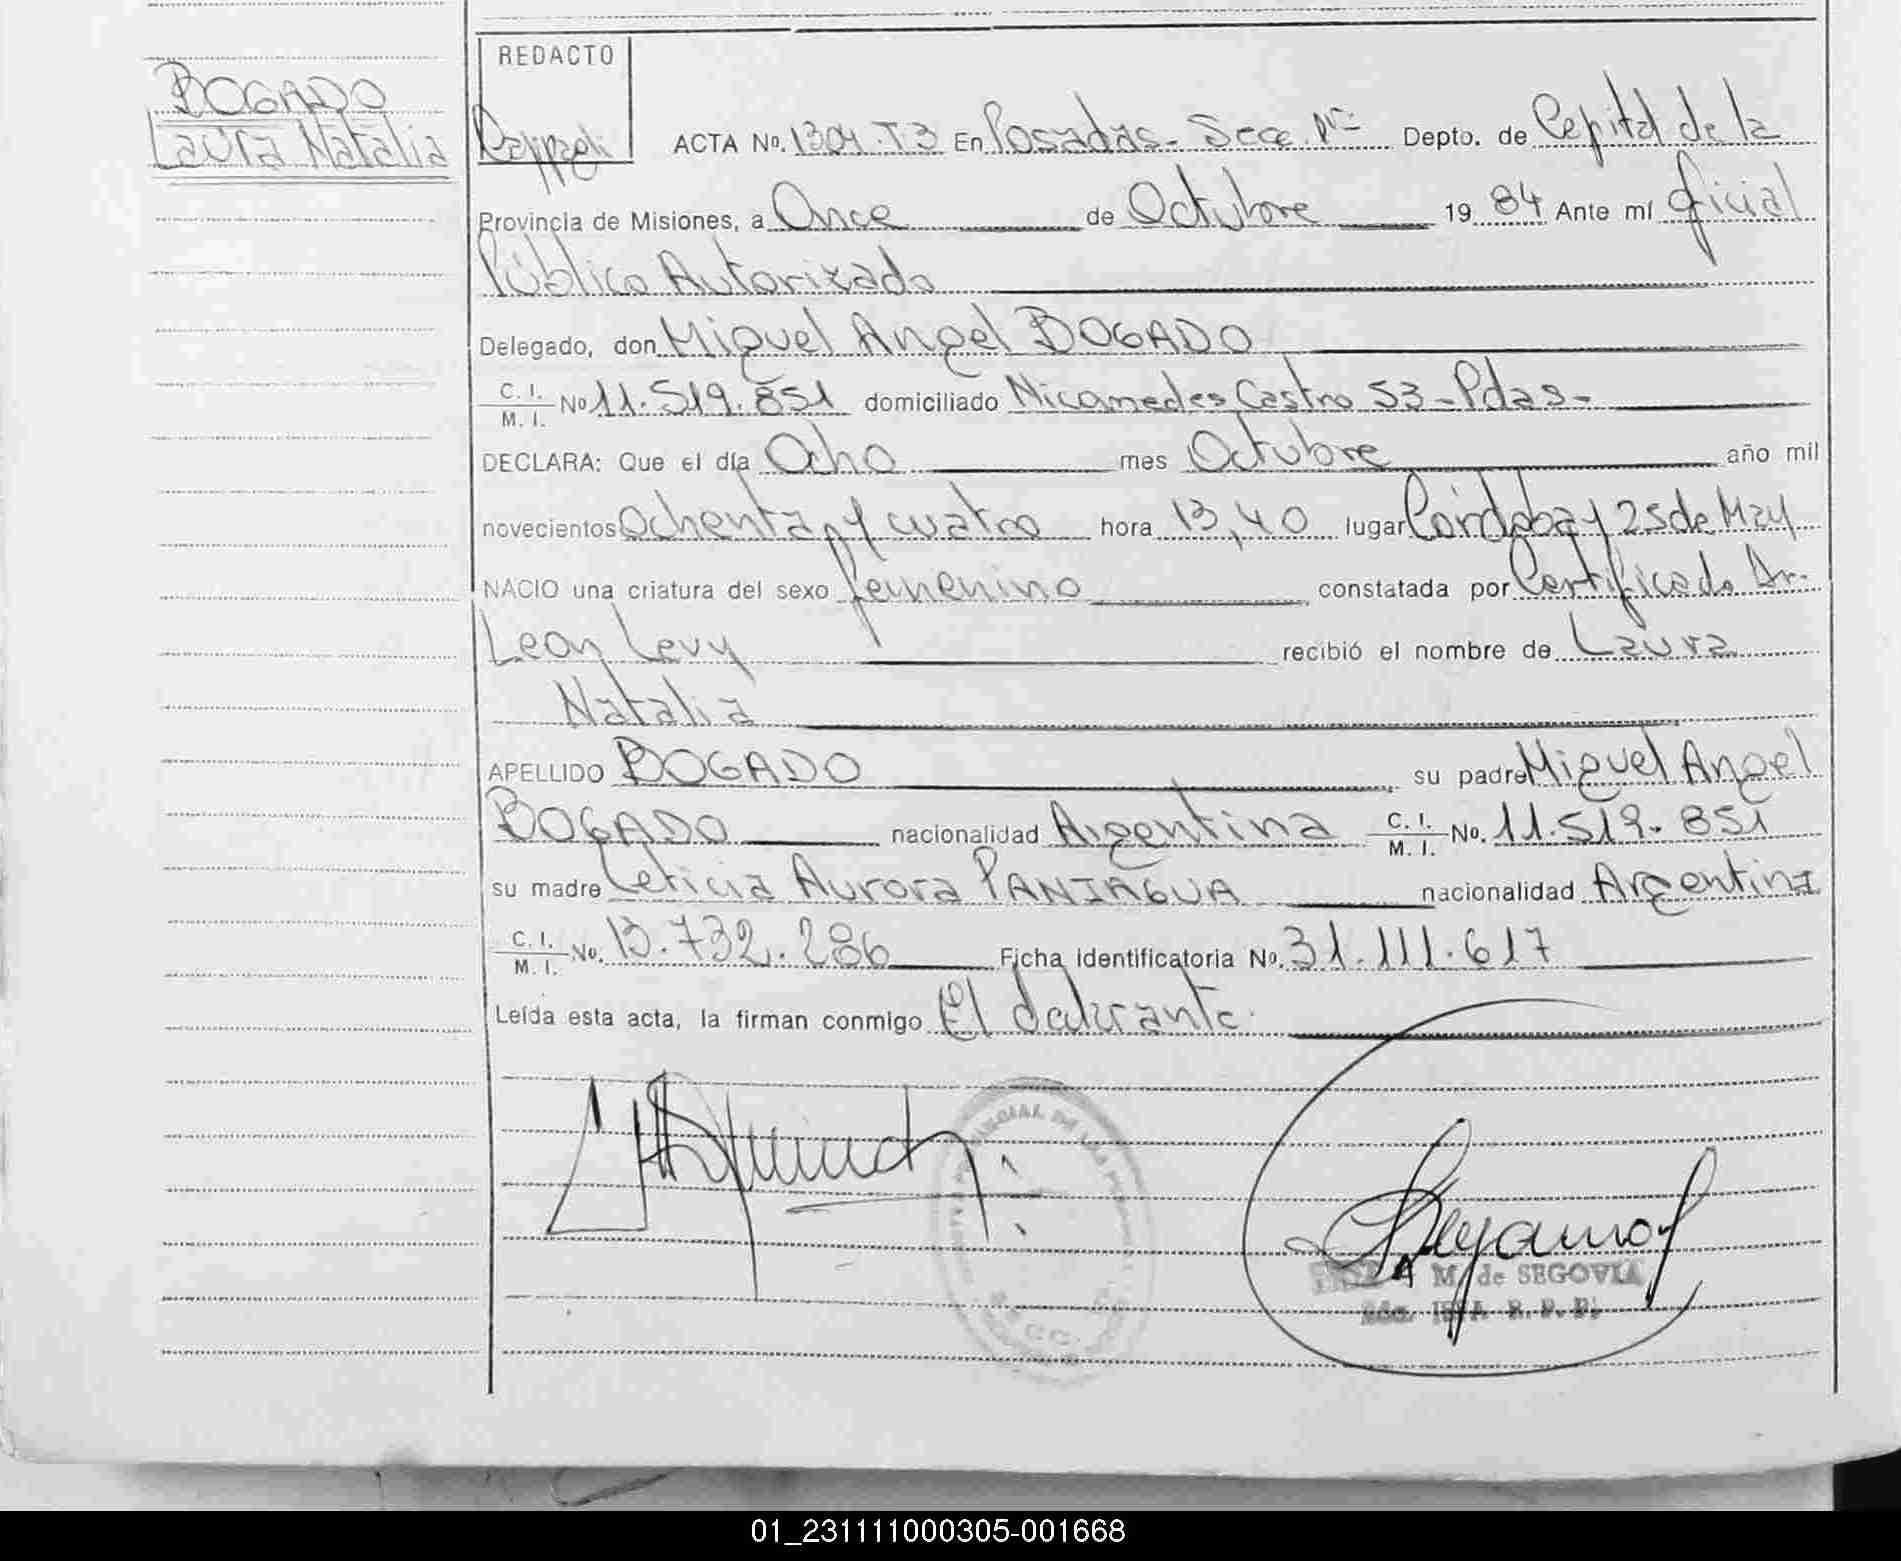 BOGADO
Laura Natalia
REDACTO
ACTA No. 1304.T3 En Posadas- Secc. Nº Depto. de Capital de la
Provincia de Misiones, a Once de Octubre 19 84 Ante mí Oficial
Público Autorizado
Delegado, don Miguel Angel BOGADO
C. I. M. I. No 11.519.851 domiciliado Nicomedes Castro 53-Pdas-
DECLARA: Que el día Ocho mes Octubre año mil
novecientos Ochenta y cuatro hora 13,40 lugar Córdoba y 25 de May
NACIO una criatura del sexo femenino constatada por Certificado Dr.
Leon Levy recibió el nombre de Laura
Natalia
APELLIDO BOGADO su padre Miguel Angel
BOGADO nacionalidad Argentina C. I. M. I. No. 11.519.851
su madre Leticia Aurora PANIAGUA nacionalidad Argentina
C. I. M. I. No. 13.732.286 Ficha identificatoria No. 31.111.617
Leída esta acta, la firman conmigo El declarante.
M. de SEGOVIA
01_231111000305-001668